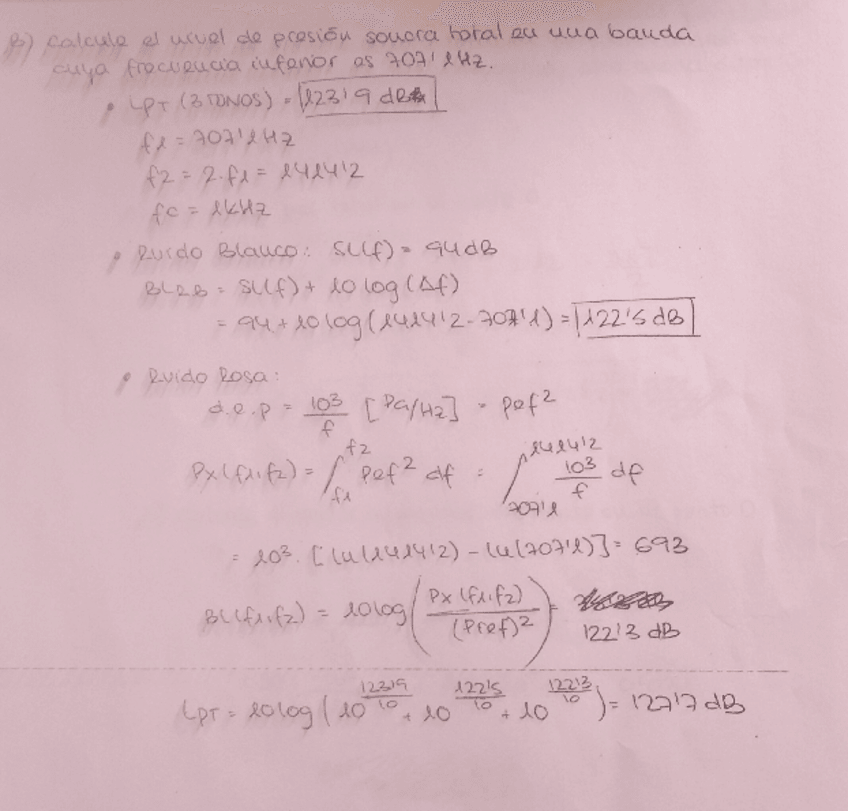 B) Calcule el nivel de presión sonora total en una banda
cuya frecuencia inferior es 707'1Hz.
• LPT (3 TONOS) = 123'9 dB
f1 = 707'1Hz
f2 = 2·f1 = 1414'2
fc = 1kHz
• Ruido Blanco: SL(f) = 94dB
BL1B = SL(f) + 10 log(Δf)
= 94 + 10 log(1414'2 - 707'1) = 122'5 dB
• Ruido Rosa:
d.e.p = 10³/f [Pa/Hz] = Pef²
Px(f1,f2) = ∫f1^f2 Pef² df = ∫707'1^1414'2 10³/f df
= 10³ · [ln(1414'2) - ln(707'1)] = 693
BL(f1,f2) = 10log(Px(f1,f2)/(Pref)²) = 122'3 dB
LPT = 10log(10^(123'9/10) + 10^(122'5/10) + 10^(122'3/10)) = 127'7 dB